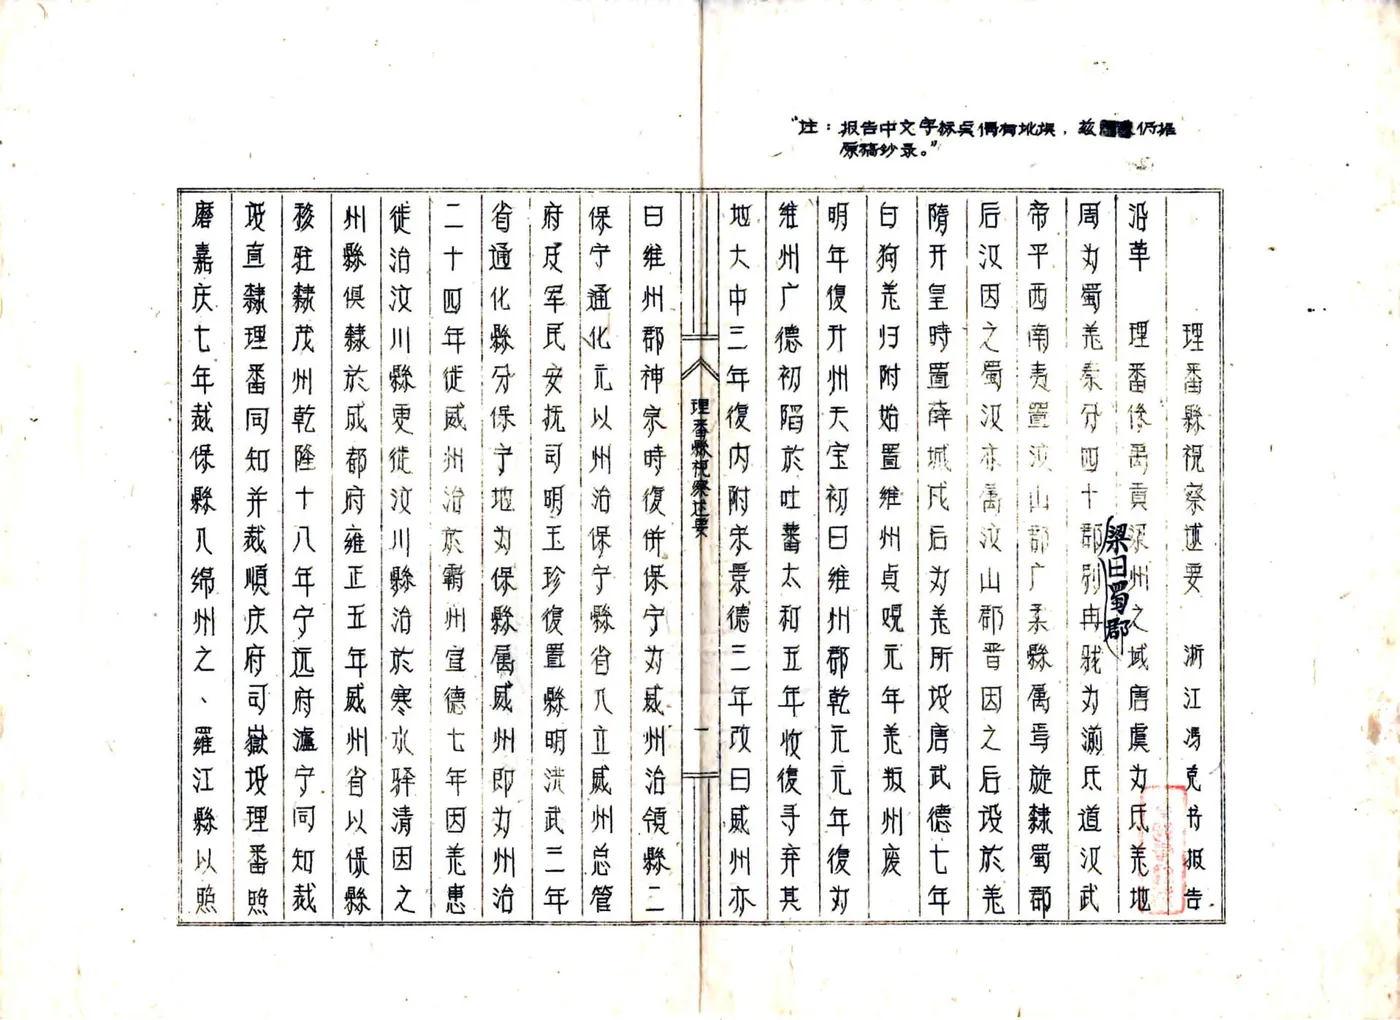 "注：报告中文字标点偶有讹误，兹仍据
原稿鈔录。"
理番縣視察述要　浙江馮克书报告
沿革　理番俻禹貢梁州之域唐虞为氐羌地
周为蜀羌秦分四十郡别冉駹为湔氐道汉武
梁曰蜀郡
帝平西南夷置汶山郡广柔縣属焉旋隸蜀郡
后汉因之蜀汉亦属汶山郡晋因之后设於羌
隋开皇時置薛城戍后为羌所没唐武德七年
白狗羌归附始置维州贞观元年羌叛州废
明年復升州天宝初曰维州郡乾元元年復为
维州广德初陷於吐蕃太和五年收復寻弃其
地大中三年復内附宋景德三年改曰威州亦
理番縣視察述要
一
曰维州郡神宗時復併保宁为威州治領縣二
保宁通化元以州治保宁縣省入立威州总管
府及军民安抚司明玉珍復置縣明洪武二年
省通化縣分保宁地为保縣属威州即为州治
二十四年徙威州治於霸州宣德七年因羌患
徙治汶川縣更徙汶川縣治於寒水驿清因之
州縣俱隸於成都府雍正五年威州省以保縣
移驻隸茂州乾隆十八年宁远府瀘宁同知裁
改直隸理番同知并裁順庆府司嶽设理番照
磨嘉庆七年裁保縣入绵州之、羅江縣以照